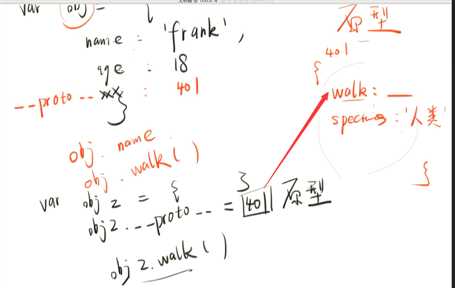 var obj = {
name : 'frank',
age : 18
--proto-- xx : 401
}
obj. name
obj. walk ( )
var obj 2 = { }
obj2. --proto-- = 401 原型
obj 2.walk ( )
原型
401
{
walk : __
: '人类'
}